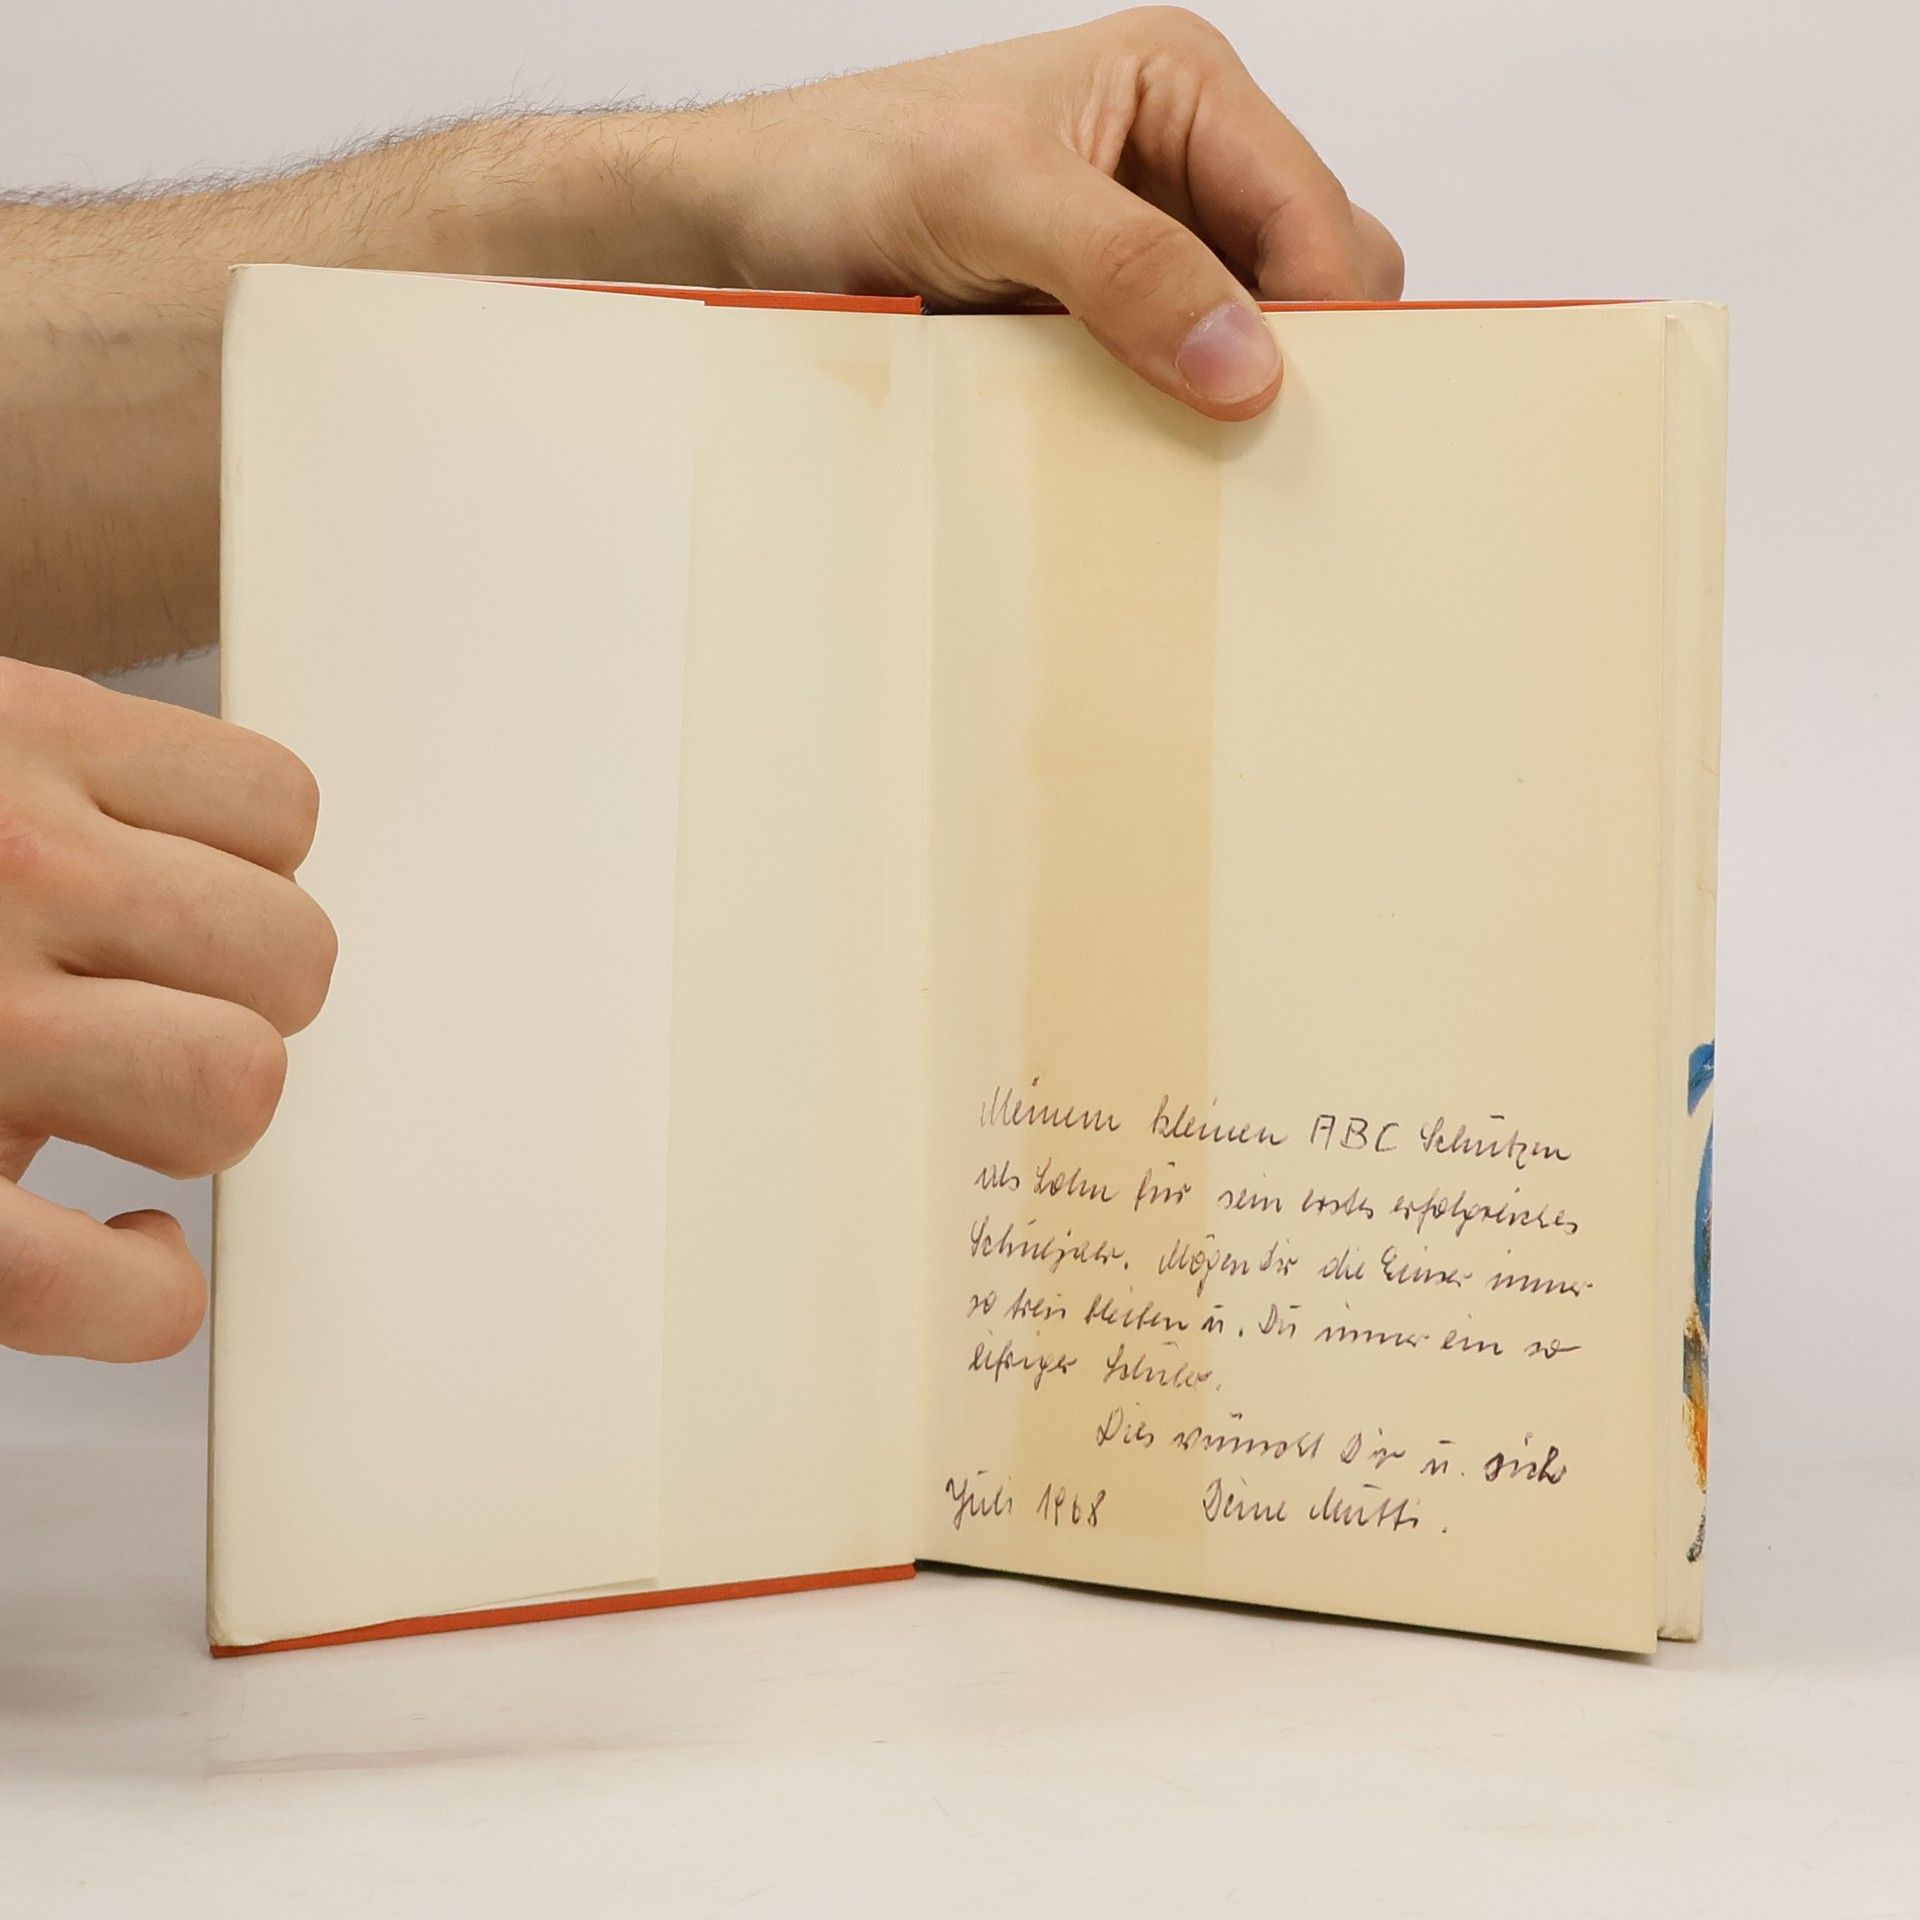 Meinem kleinen ABC Schützen
als Lohn für sein erstes erfolgreiches
Schuljahr. Mögen Dir die Einser immer
so treu bleiben u. Du immer ein so
eifriger Schüler.
Dies wünscht Dir u. sich
Juli 1968 Deine Mutti.